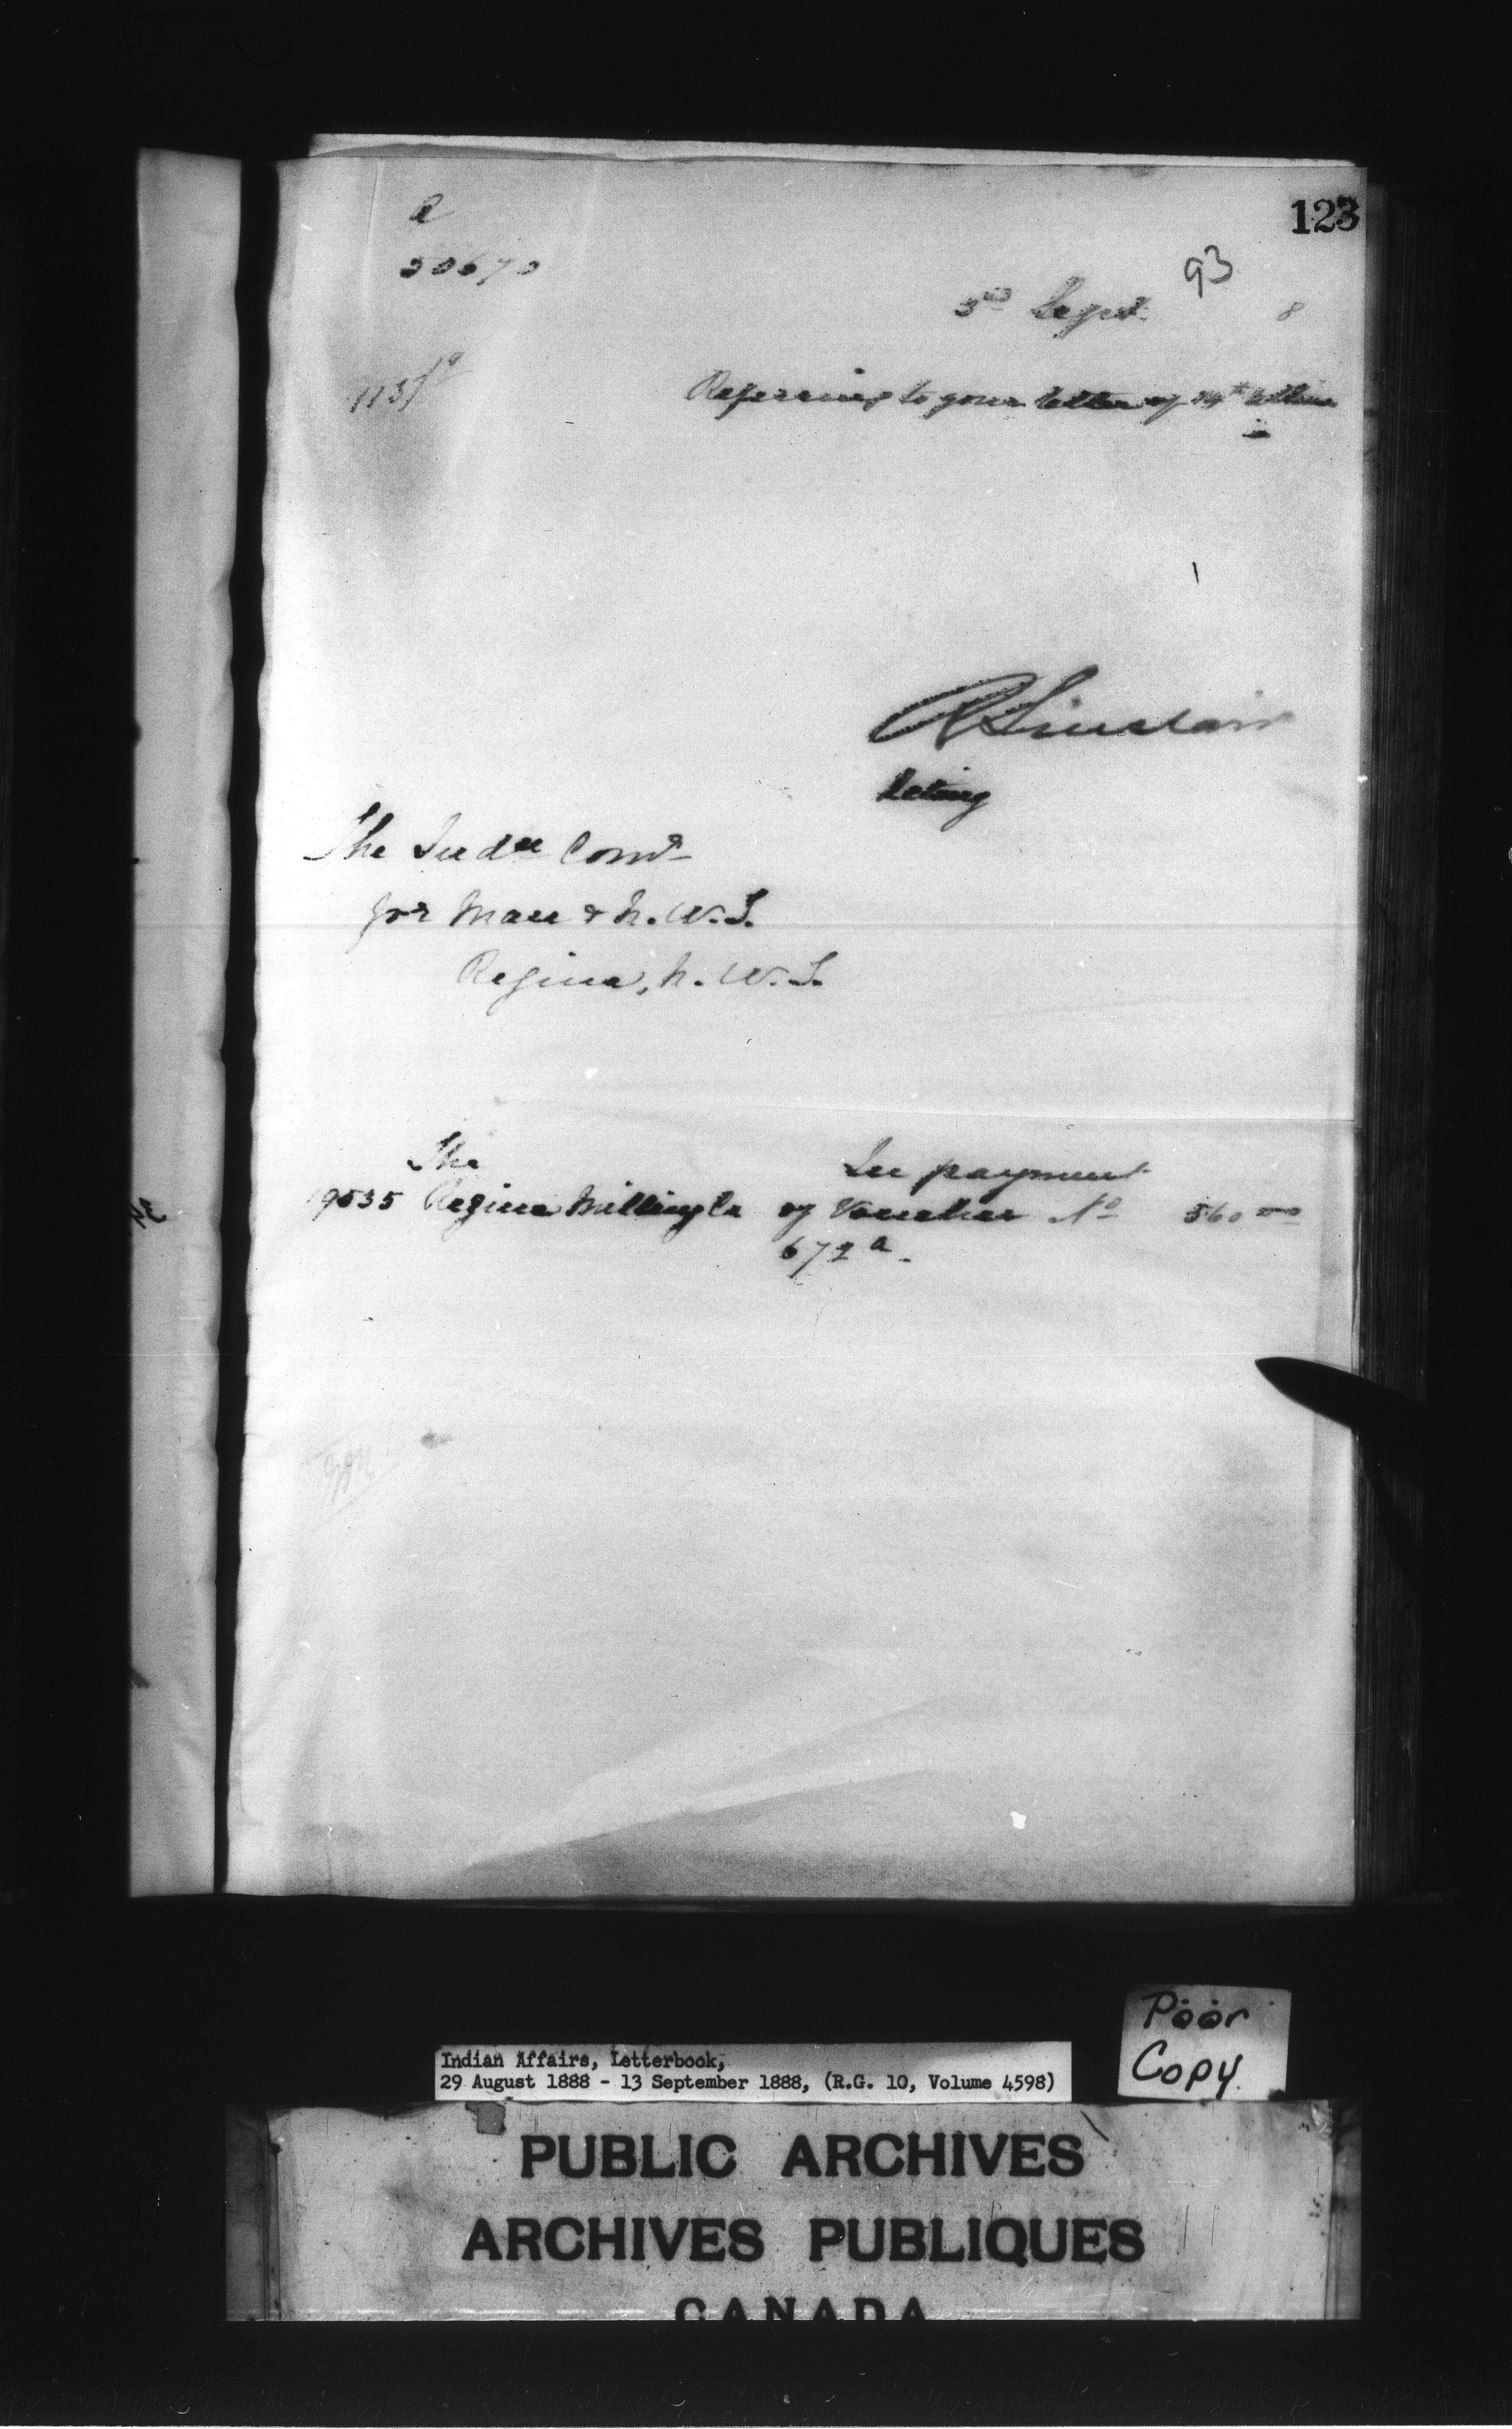 123
R
50670
93
3rd Sept. 8
Referring to your letter of 24th ultimo
R Sinclair
Acting
The Indn Comr
for Man & N.W.T.
Regina, N.W.T.
The In payment
19535 Regina Milling Co of Voucher No 560 00
672 a.
Poor
Copy.
Indian Affairs, Letterbook,
29 August 1888 - 13 September 1888, (R.G. 10, Volume 4598)
PUBLIC ARCHIVES
ARCHIVES PUBLIQUES
CANADA